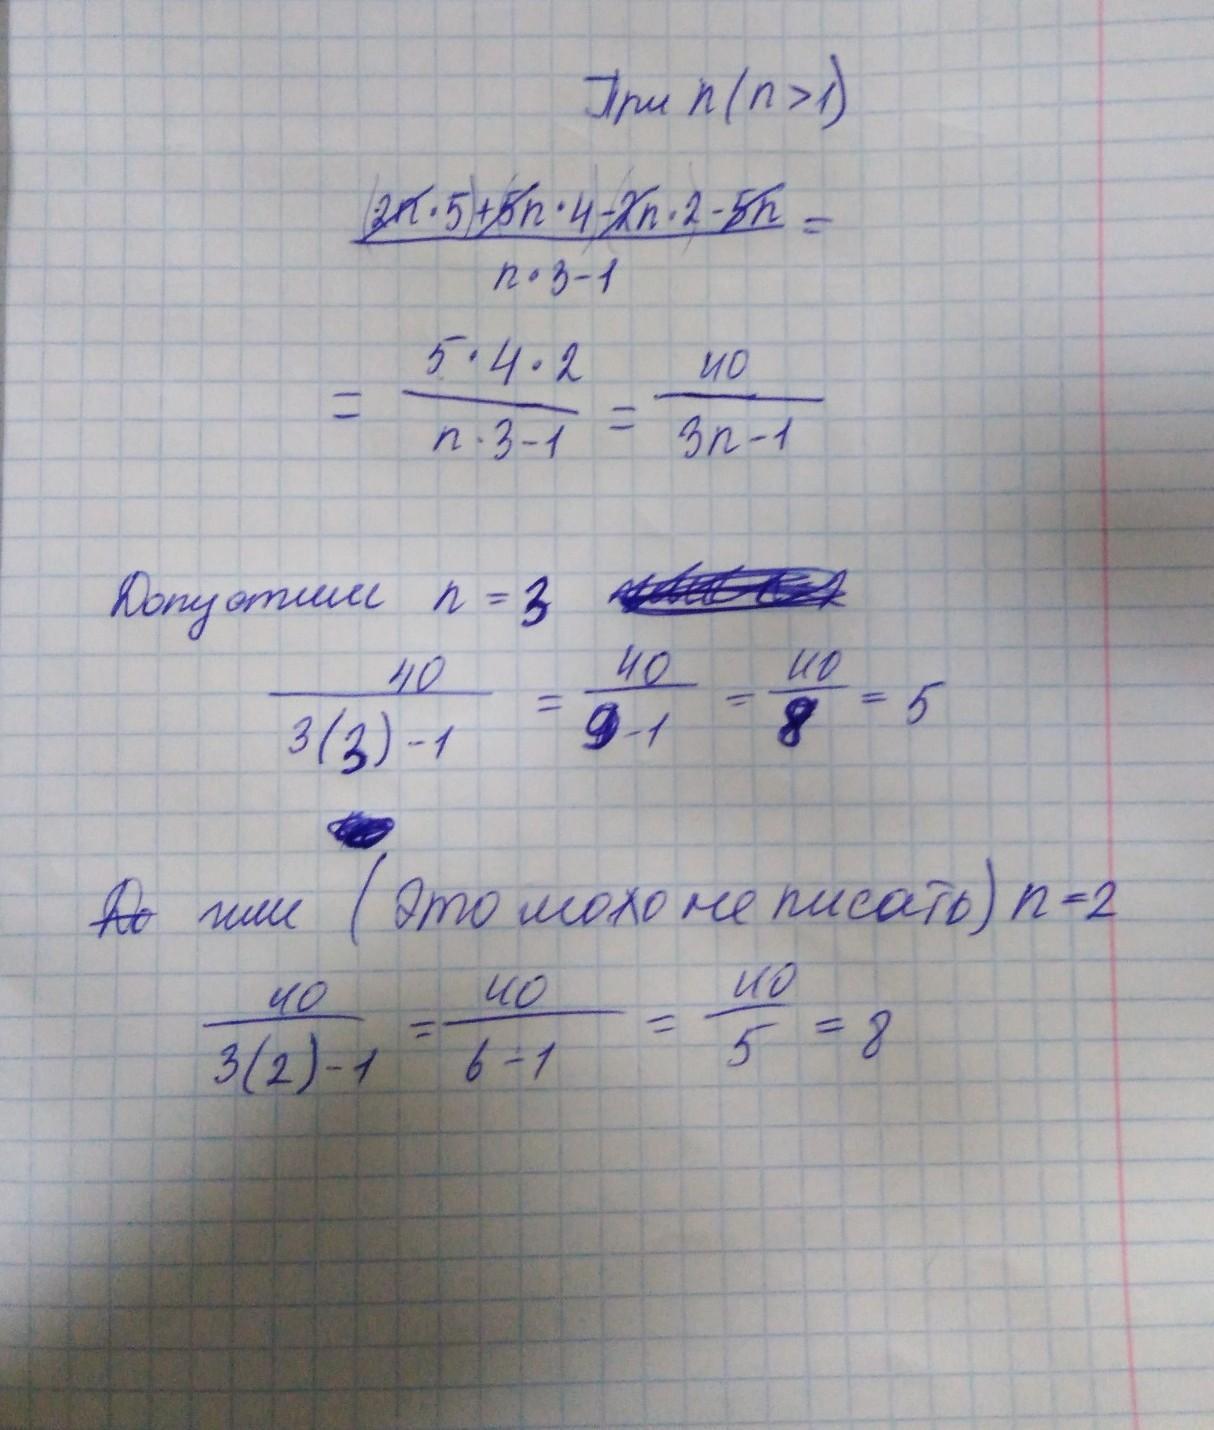 При n (n > 1)
(2n · 5) + 5n · 4 - (2n · 2) - 5n =
n · 3 - 1
= 5 · 4 · 2 / n · 3 - 1 = 40 / 3n - 1
Допустим n = 3
40 / 3(3) - 1 = 40 / 9 - 1 = 40 / 8 = 5
До или (Это можо не писать) n = 2
40 / 3(2) - 1 = 40 / 6 - 1 = 40 / 5 = 8